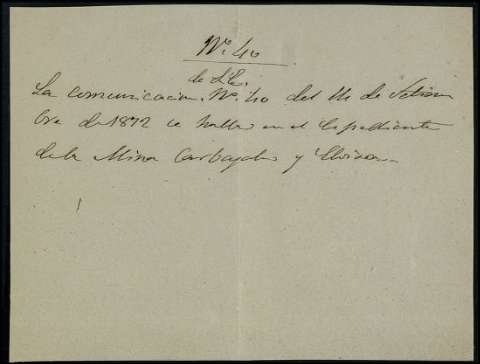 Nº 40
de S.E.
La comunicacion Nº 40 del 14 de Setiem
bre de 1872 se halla en el Espediente
de la Mina Carbajal y